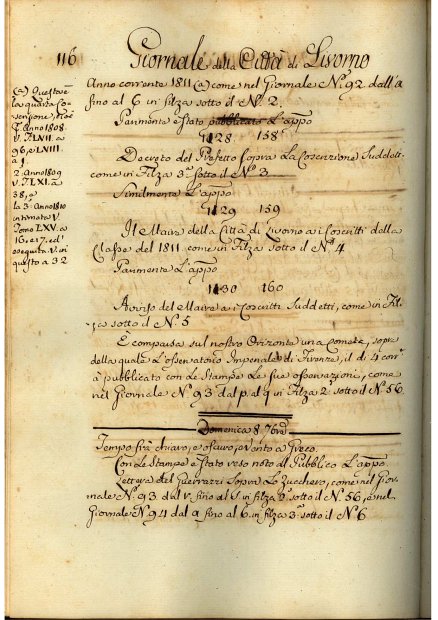 116 Giornale della Città di Livorno
(a) Questa è
la quarta Co-
scrizione,
l'Anno 1808.
V. T. LVII. a
96, e LVIII
a 1.
2. Anno 1809
V. T. LXI. a
38, a
la 3. Anno 1810
intimata V.
Tomo LXV. a
16. e 17. ed
eseguita V. in
questo a 32
Anno corrente 1811 (a) come nel Giornale N. 92 dall' a
fino al 6 in filza sotto il N. 2.
Parimente è stato pubblicato L'appo
1128 158
Decreto del Prefetto sopra La Coscrizione Suddett.
come in Filza 3.ª sotto il N. 3
Similmente L'appo
1129 159
Il Maire della Città di Livorno a i Coscritti della
Classe del 1811 come in Filza sotto il N. 4
Parimente L'appo
1130 160
Avviso del Maire a i Coscritti Suddetti, come in Fil-
za sotto il N. 5
È comparsa sul nostro Orizonte una Cometa, sopra
della quale L'Osservatorio Imperiale di Firenze, il dì 4 corr.
à pubblicato con Le Stampe Le sue osservazioni, come
nel Giornale N. 93 dal p. al q in Filza 2.ª sotto il N. 56.
Domenica 8 7bre
Tempo frà chiaro, e oscuro, e Vento a Greco.
Con Le Stampe è stato reso noto al Pubblico L'appo
Lettera del Guerrazzi sopra Lo Zucchero, come nel Gior-
nale N. 93. dal r fino al s in filza 2.ª sotto il N. 56, e nel
Giornale N. 94 dal q fino al 6. in filza 3.ª sotto il N. 6